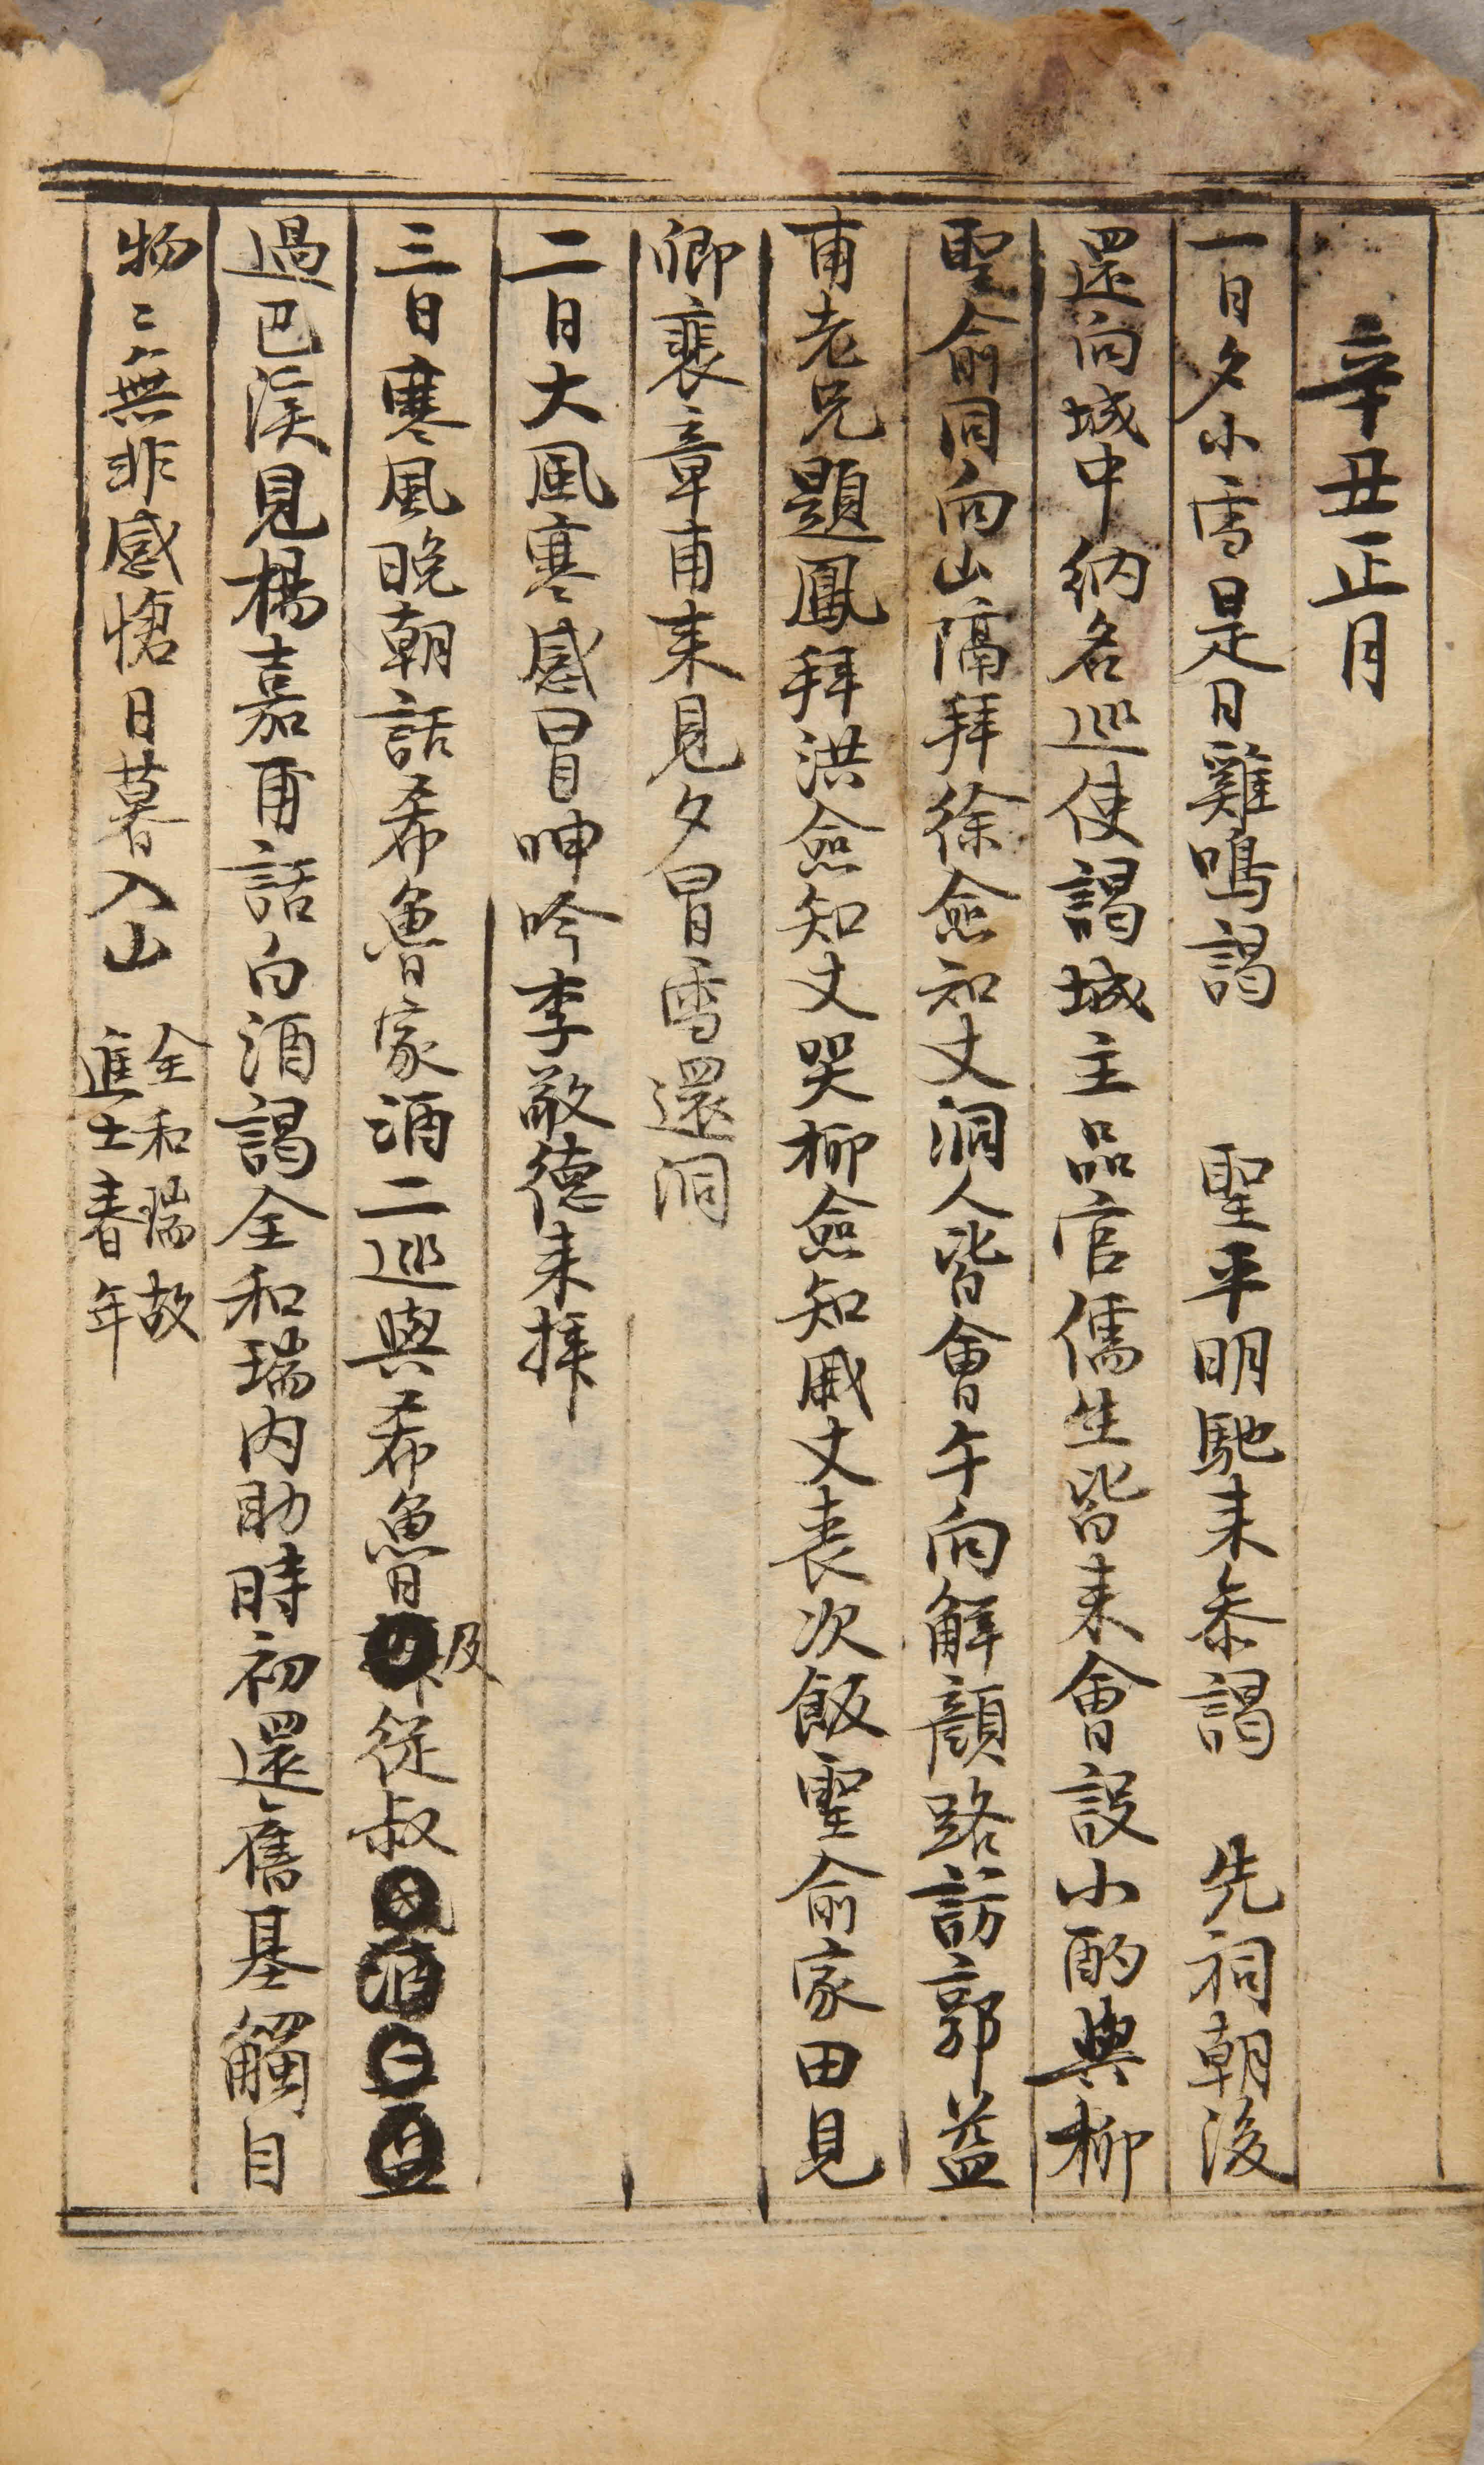 辛丑正月
一日夕小雪是日雞鳴謁 聖平明馳来叅謁 先祠朝後
還向城中納名巡使謁城主品官儒生皆来會設小酌與柳
聖俞同向山隔拜徐僉知丈洞人皆會午向解顔路訪郭益
甫老兄題鳳拜洪僉知丈哭柳僉知戚丈喪次飯聖俞家田見
卿裵章甫来見夕冒雪還洞
二日大風寒感冒呻吟李敬德来拝
三日寒風晩朝話希魯家酒二巡與希魯及從叔
過巴溪見楊嘉甫話白酒謁全和瑞内助時初還舊基觸目
物〻無非感愴日暮入山 全和瑞故
進士春年